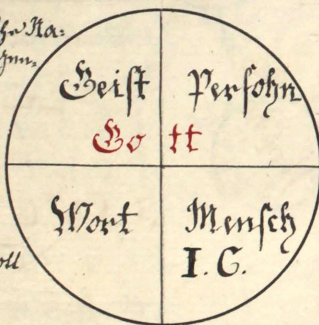 Geist Persohn
Go tt
Wort Mensch
I. C.